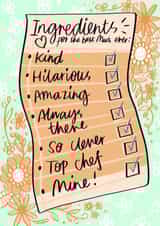 Ingredients
for the best Mum ever:
• Kind
• Hilarious
• Amazing
• Always
there
• So clever
• Top chef
• Mine!